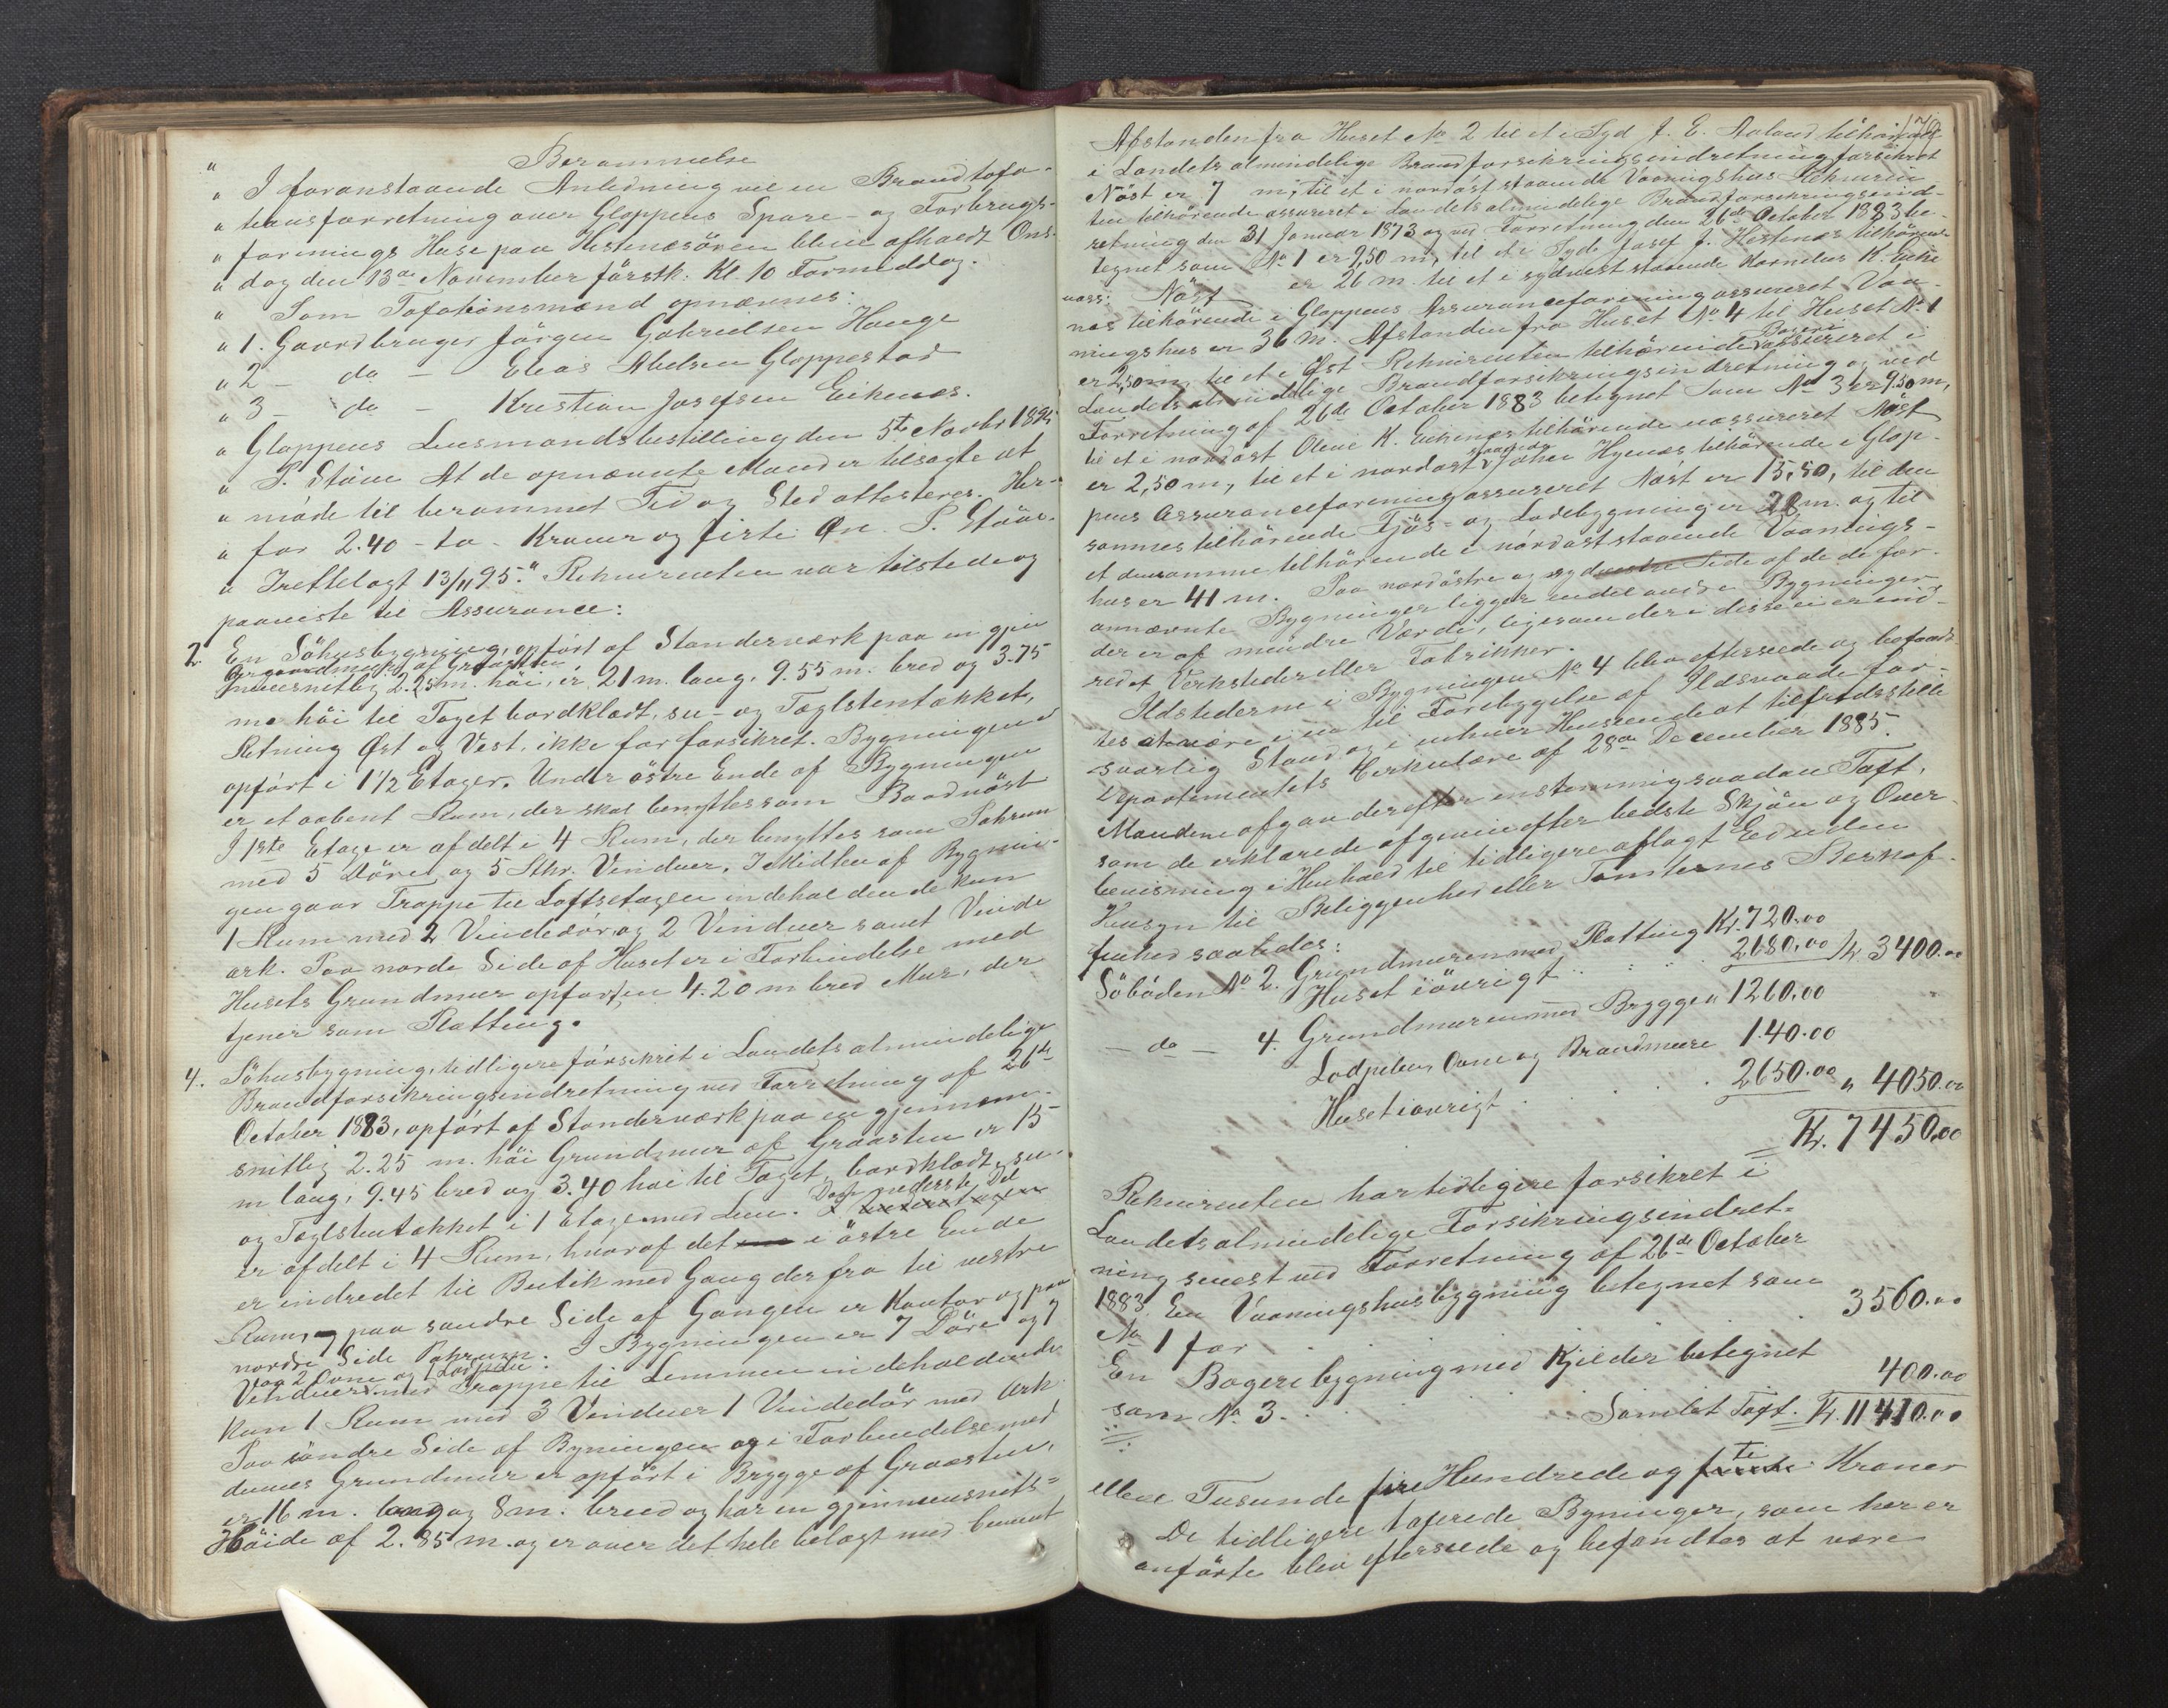 " Berammelse
" I foranstaaende Anledning vil en Brandtaxa-
" tionsforretning over Gloppens Spare- og Forbrugs-
" forenings Huse paa Hestenesøren blive afholdt Ons-
" dag den 13de November førstk. Kl. 10 Formiddag.
" Som Taxationsmænd opnævnes:
" 1. Gaardbruger Jørgen Gabrielsen Hauge
" 2 - do - Elias Abelsen Gloppestad
" 3 - do - Kristian Josefsen Eikenæs.
" Gloppens Lensmandsbestilling den 5te Novbr 1895
" P. Støve At de opnævnte Mænd er tilsagte at
" møde til berammet Tid og Sted attesteres. Her-
" for 2.40 - to - Kroner og firti Øre P. Støve.
" Fremlagt 13/11 95." Rekvirenten var tilstede og
paaviste til Assurance:
2. En Søhusbygning, opført af Standerværk paa en gjen
nemsnitlig Grundmur af Graasten 2.25 m. høi, er 21 m. lang, 9.55 m. bred og 3.75
m. høi til Taget bordklædt, su- og Tæglstentækket,
Retning Øst og Vest, ikke før forsikret. Bygningen er
opført i 1½ Etager. Under østre Ende af Bygningen
er et aabent Rum, der skal benyttes som Baadnøst
I 1ste Etage er afdelt i 4 Rum, der benyttes som Pakrum
med 5 Døre og 5 Stkr. Vinduer. I Midten af Bygnin-
gen gaar Trappe til Loftsetagen indeholdende kun
1 Rum med 2 Vindedør og 2 Vinduer samt Vinde
ark. Paa nordre Side af Huset er i Forbindelse med
Husets Grundmur opført en 4.20 m bred Mur, der
tjener som Platting.
4. Søhusbygning, tidligere forsikret i Landets almindelige
Brandforsikringsindretning ved Forretning af 26de
October 1883, opført af Standerværk paa en gjennem-
snitlig 2.25 m. høi Grundmur af Graasten er 15
m lang, 9.45 bred og 3.40 høi til Taget, bordklædt, su-
og Tæglstentækket i 1 Etage med Lem. Dens nederste Del
er afdelt i 4 Rum, hvoraf det i østre Ende
er indredet til Butik med Gang derfra til vestre
Rum, og paa søndre Side af Gangen er Kontor og paa
nordre Side Pakrum. I Bygningen er 7 Døre og 7
Vinduer og 2 Ovne og 1 Lodpibe med Trappe til Lemmen indeholdende
kun 1 Rum med 3 Vinduer 1 Vindedør med Ark
Paa søndre Side af Bygningen og i Forbindelse med
dennes Grundmur er opført 1 Brygge af Graasten,
er 16 m. lang og 8 m. bred og har en gjennemsnits-
Høide af 2.85 m. og er over det hele belagt med Cement
Afstanden fra Huset No 2 til et i Syd J. E. Aaland tilhørende
i Landets almindelige Brandforsikringsindretning forsikret
Nøst er 7 m, til et i nordøst staaende Vaaningshus Rekviren
ten tilhørende assureret i Landets almindelige Brandforsikringsind-
retning den 31 Januar 1873 og ved Forretning den 26de October 1883 be-
tegnet som No 1 er 9,50 m, til et i Syd Josef J. Hestenes tilhørende
uass. Nøst er 26 m. til et i sydvest staaende Kornelius K. Eike
næs tilhørende i Gloppens Assuranceforening assureret Vaa-
ningshus er 36 m. Afstanden fra Huset No 4 til Huset No 1
er 2,50 m, til et i Øst Rekvirenten tilhørende Bageri assureret i
Landets almindelige Brandforsikringsindretning og ved
Forretning af 26de October 1883 betegnet som No 3 er 9.50 m,
til et i nordøst Oline K. Eikenæs tilhørende uassureret Nøst
er 2,50 m, til et i nordøst staaende Johan Hynæs tilhørende i Glop-
pens Assuranceforening assureret Nøst er 15,50, til den
sammes tilhørende Fjøs- og Ladebygning er 28 m. og til
et densamme tilhørende i nordøst staaende Vaanings-
hus er 41 m. Paa nordøstre og sydvestre Side af de de for-
annævnte Bygninger ligger endel andre Bygninger
der er af mindre Værdi, ligesom der i disse ei er ind-
redet Verksteder eller Fabrikker.
Ildstederne i Bygningen No 4 blev efterseede og befand-
tes at være i en til Forebyggelse af Ildsvaade for-
svarlig Stand og i enhver Henseende at tilfredsstille
Departementets Cirkulære af 28de December 1885.
Mændene afgav derefter enstemmig saadan Taxt,
som de erklærede afgiven efter bedste Skjøn og Over-
bevisning i Henhold til tidligere aflagt Ed uden
Hensyn til Beliggenhed eller Tomternes Beskaf-
fenhed saaledes:
Søboden No 2. Grundmuren med Platting Kr. 720.00
Huset iøvrigt . . . . 2680.00 Kr 3400.00
- do - 4. Grundmuren med Bryggen 1260.00
Lodpiben Ovne og Brandmure 140.00
Huset iøvrigt . . . . . 2650.00 " 4050.00
Kr. 7450.00
Rekvirenten har tidligere forsikret i
Landets almindelige Forsikringsindret-
ning senest ved Forretning af 26de October
1883 En Vaaningshusbygning betegnet som
No 1 for . . . 3560.00
En Bageribygning med Kjelder betegnet
som No 3. . . . . 400.00
Samlet Taxt. Kr. 11410.00
elleve Tusunde fire Hundrede og ti Kroner
De tidligere taxerede Bygninger, som her er
anførte blev efterseede og befandtes at være